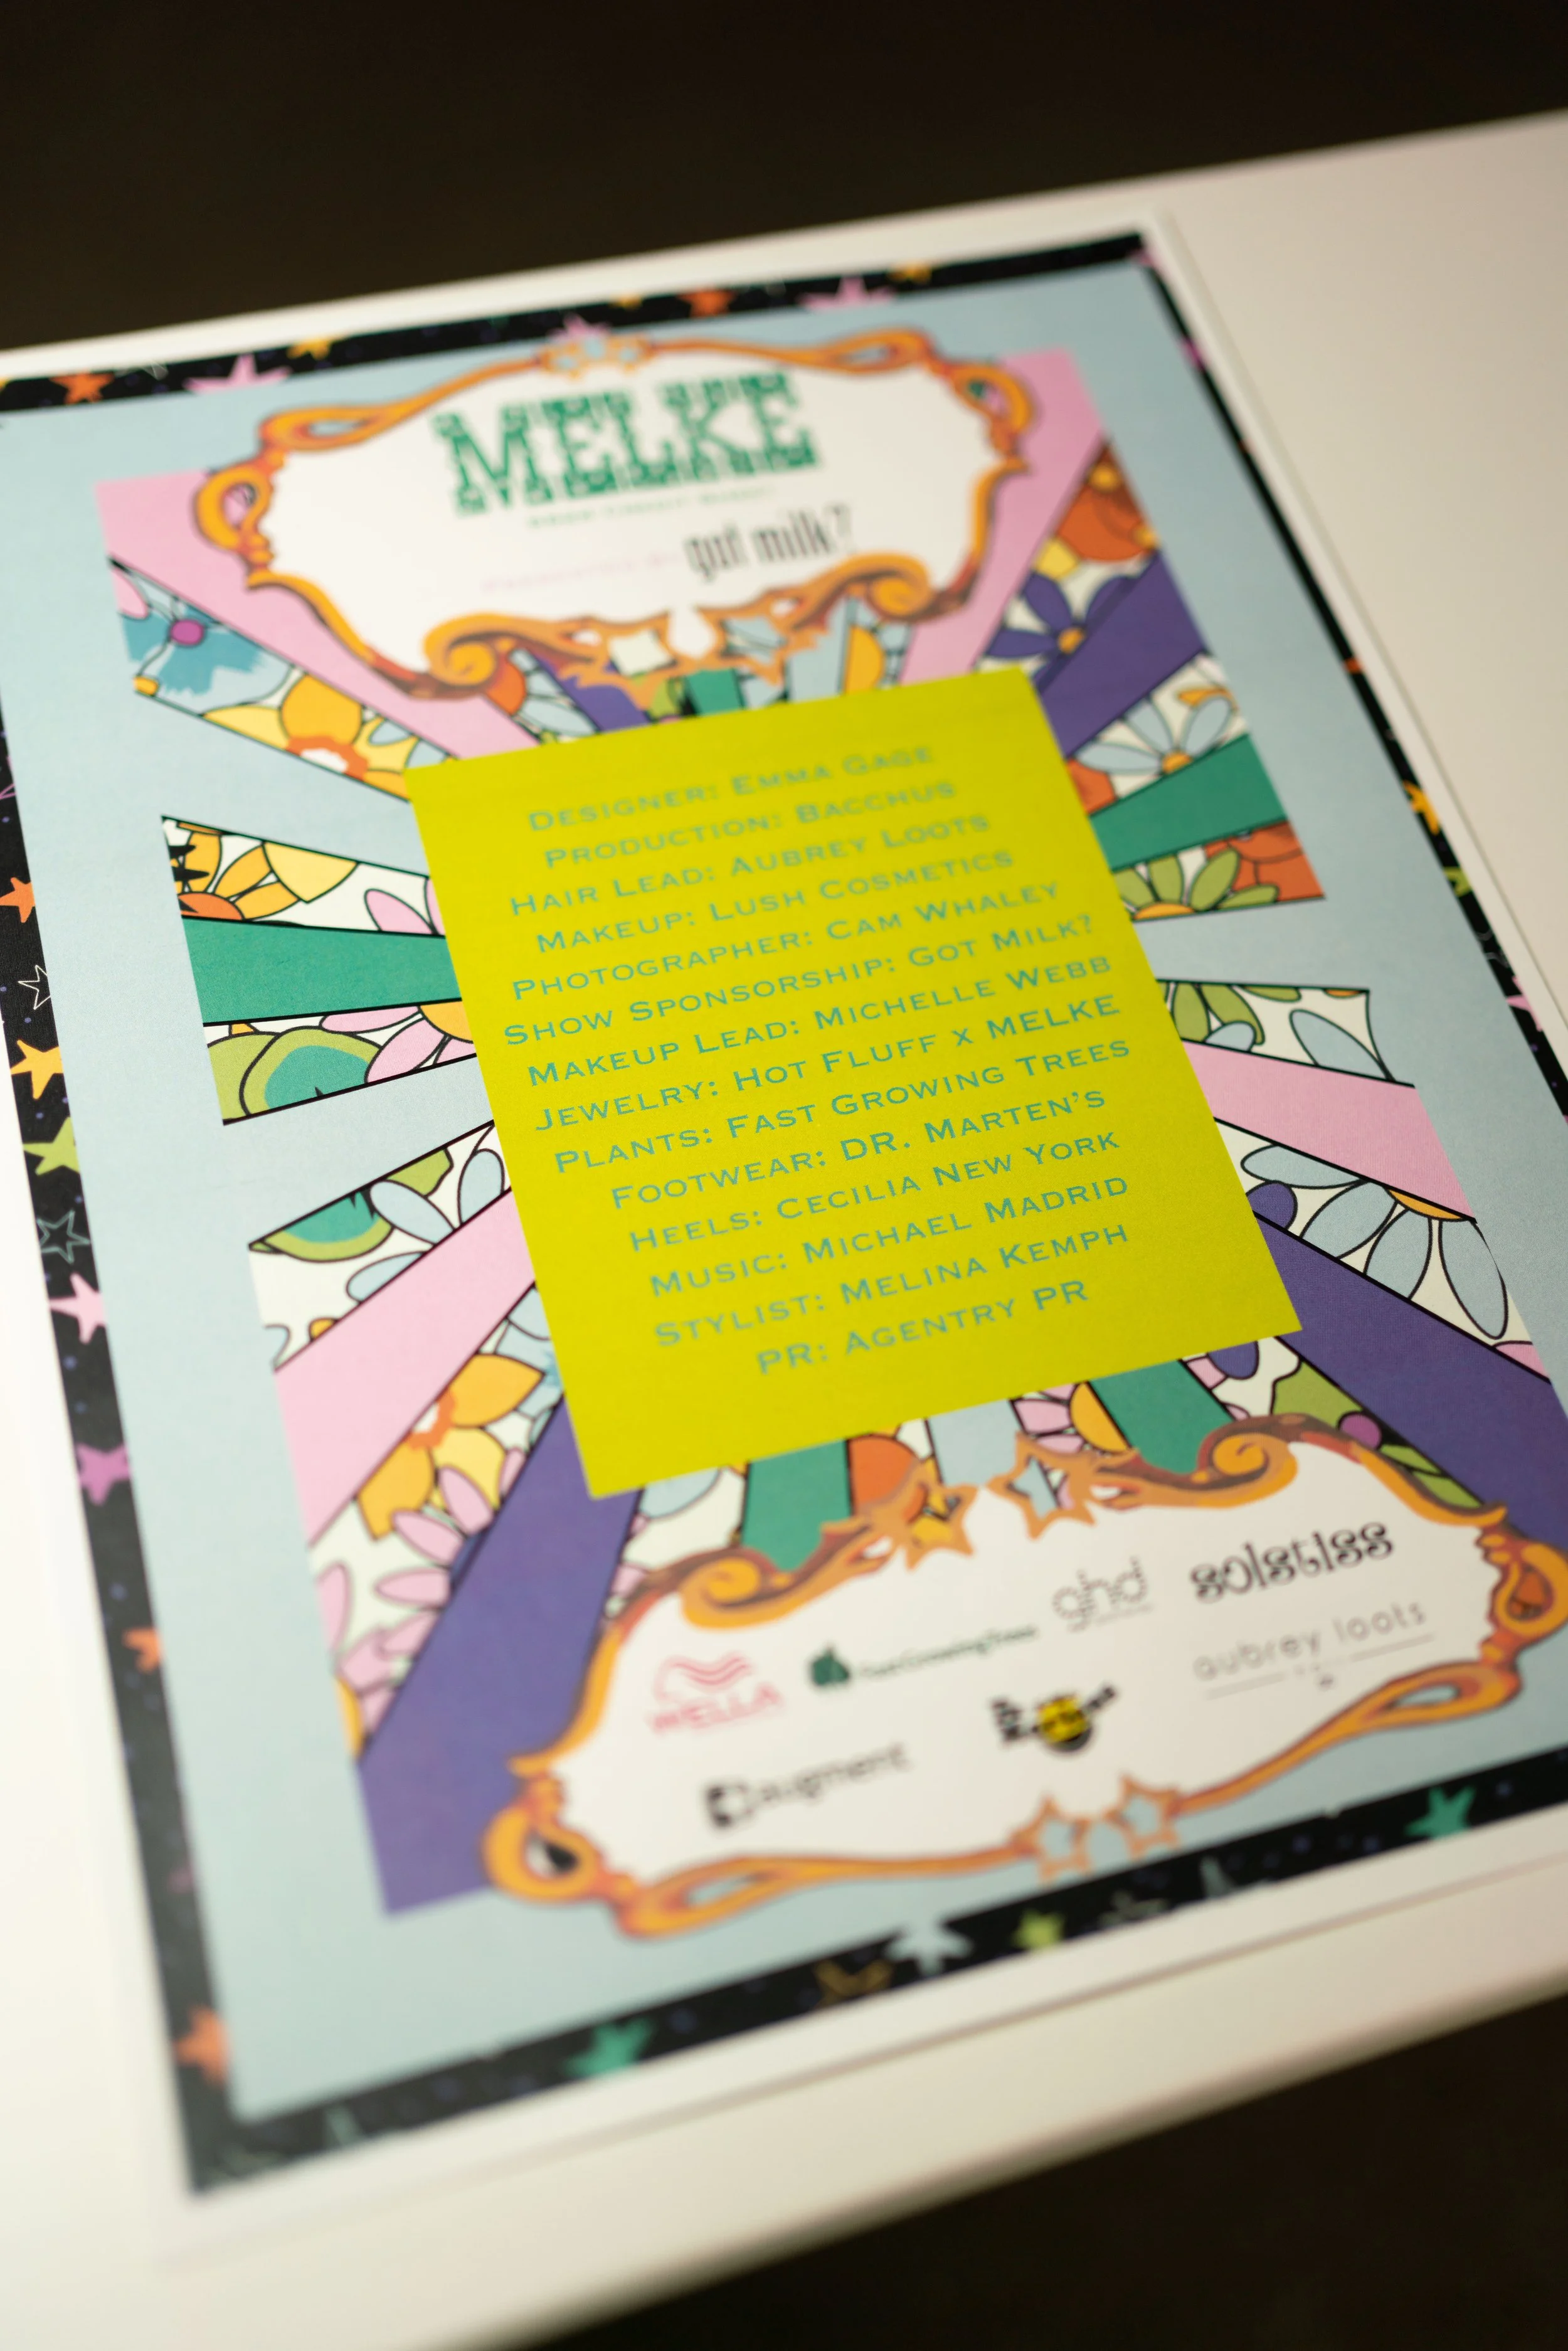 MELKE
PRESENTED BY got milk?
DESIGNER: EMMA GAGE
PRODUCTION: BACCHUS
HAIR LEAD: AUBREY LOOTS
MAKEUP: LUSH COSMETICS
PHOTOGRAPHER: CAM WHALEY
SHOW SPONSORSHIP: GOT MILK?
MAKEUP LEAD: MICHELLE WEBB
JEWELRY: HOT FLUFF X MELKE
PLANTS: FAST GROWING TREES
FOOTWEAR: DR. MARTEN'S
HEELS: CECILIA NEW YORK
MUSIC: MICHAEL MADRID
STYLIST: MELINA KEMPH
PR: AGENTRY PR
ghd solstiss
WELLA FastGrowingTrees aubrey loots
Augment Dr. Martens